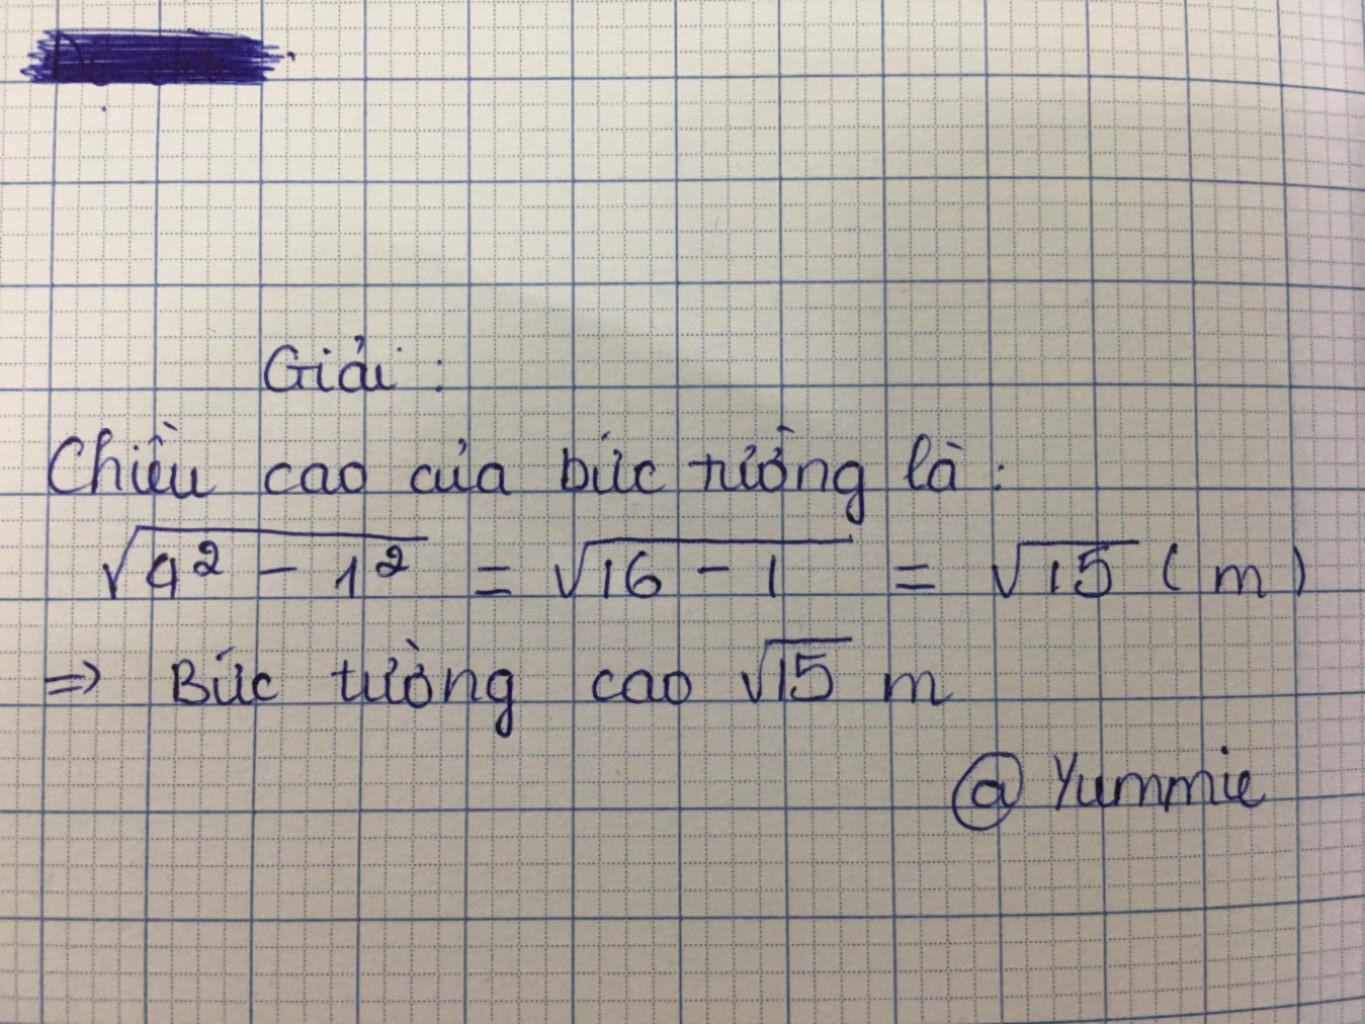 Giải :
Chiều cao của bức tường là :
√4² - 1² = √16 - 1 = √15 ( m )
=> Bức tường cao √15 m
@ Yummie